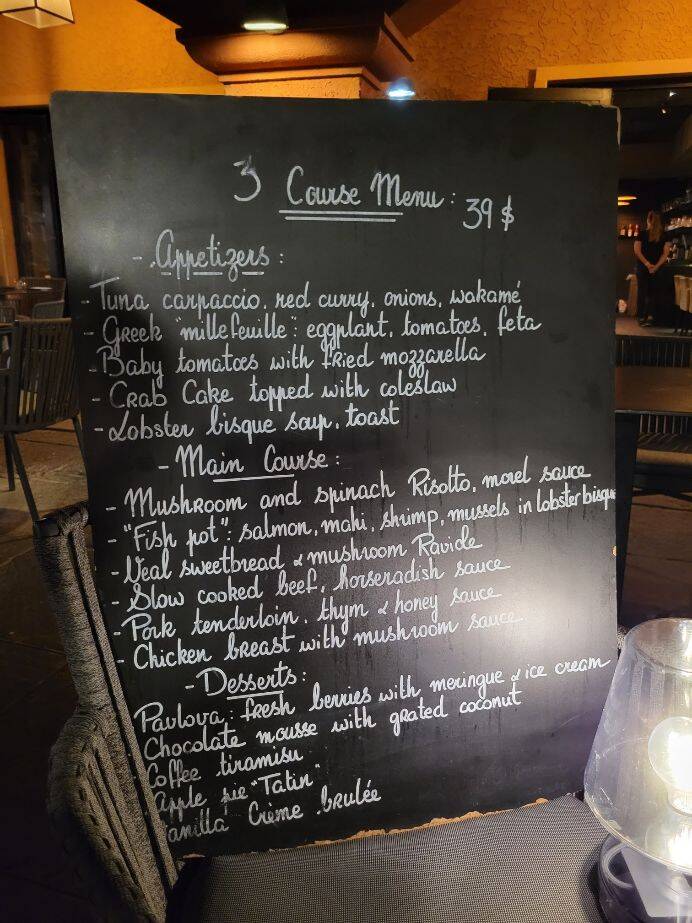 3 Course Menu : 39 $
- Appetizers :
- Tuna carpaccio, red curry, onions, wakamé
- Greek "millefeuille" : eggplant, tomatoes, feta
- Baby tomatoes with fried mozzarella
- Crab Cake topped with coleslaw
- Lobster bisque soup, toast
- Main Course :
- Mushroom and spinach Risotto, morel sauce
- "Fish pot" : salmon, mahi, shrimp, mussels in lobster bisque
- Veal sweetbread & mushroom Raviole
- Slow cooked beef, horseradish sauce
- Pork tenderloin, thym & honey sauce
- Chicken breast with mushroom sauce
- Desserts :
Pavlova : fresh berries with meringue & ice cream
Chocolate mousse with grated coconut
Coffee tiramisu
Apple pie "Tatin"
Vanilla Crème brulée